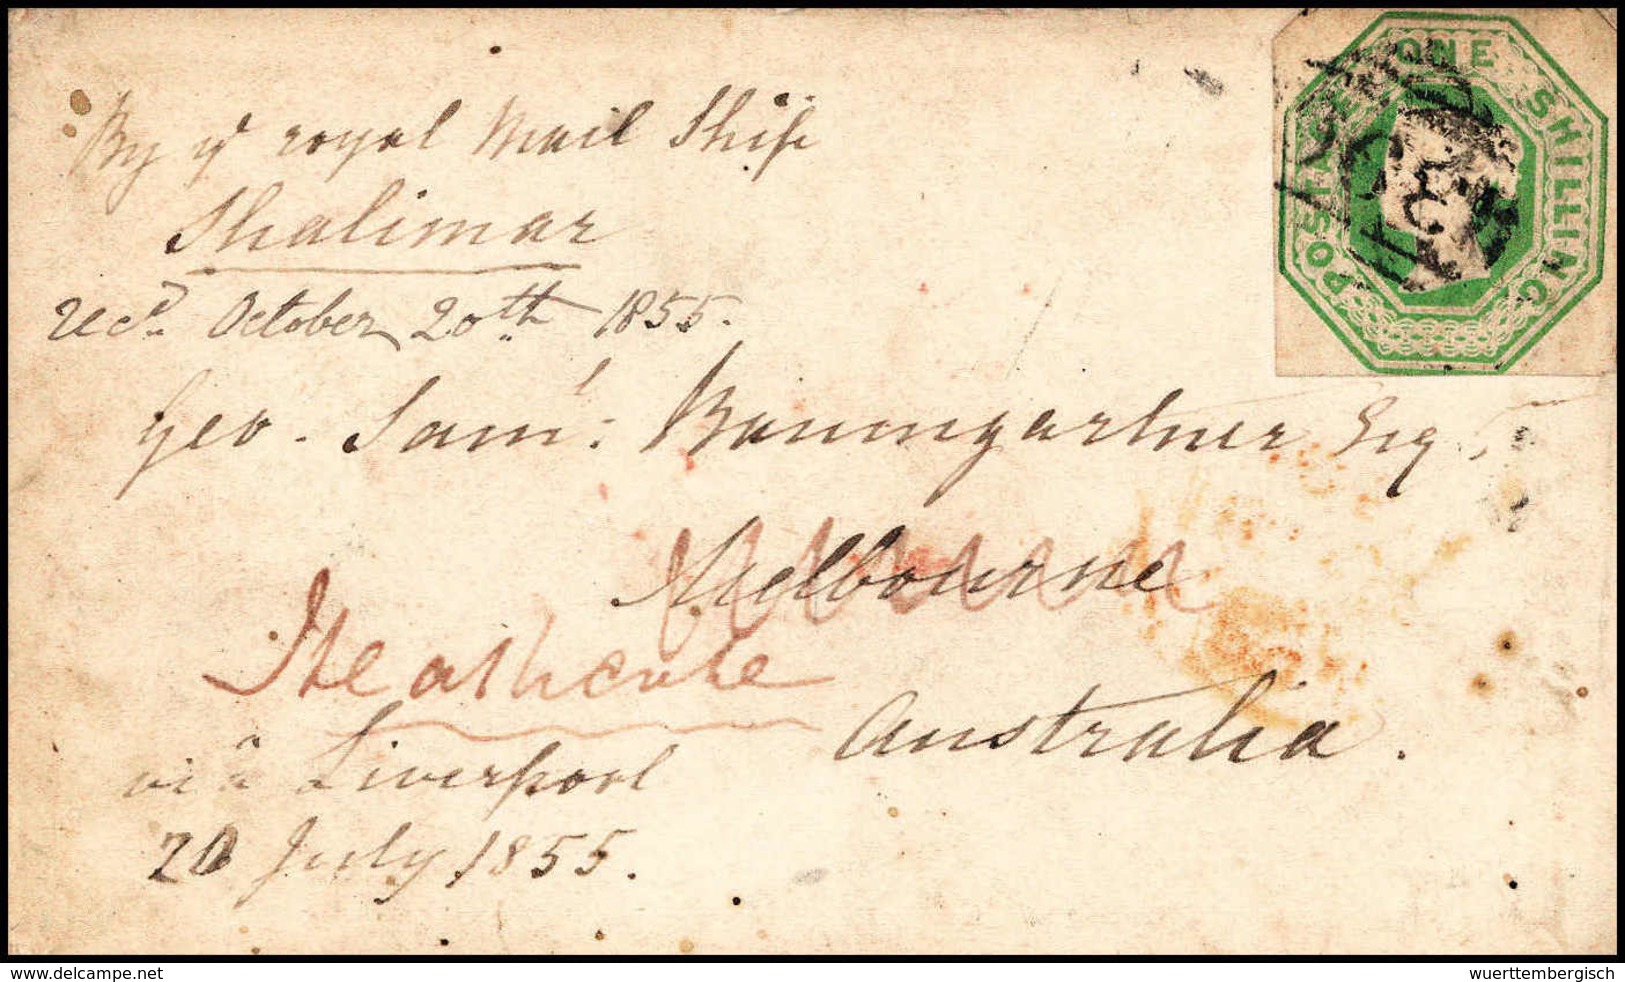 By ye royal Mail Ship
Shalimar
recd October 20th 1855.
Geo. Saml: Baumgartner Esq,
Melbourne
Heathcote
Australia.
via Liverpool
20 July 1855.
POSTAGE ONE SHILLING
www.delcampe.net
wuerttembergisch